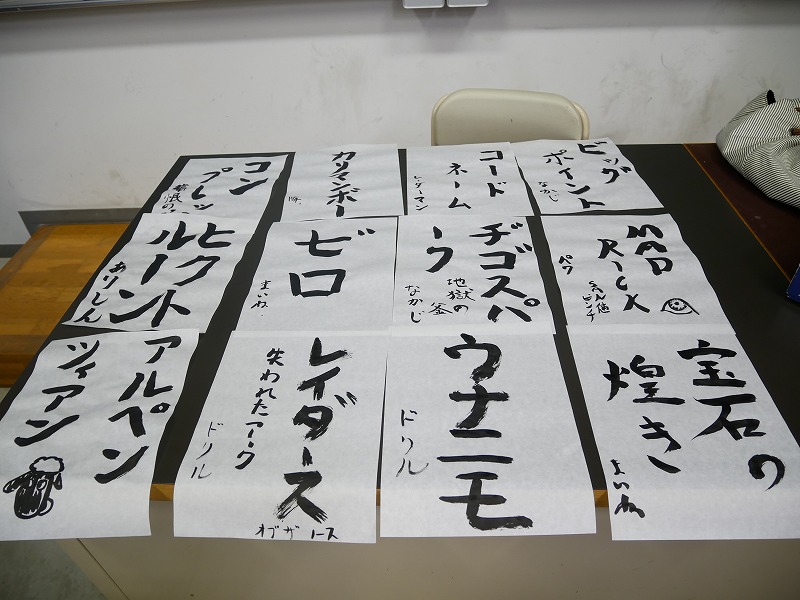 ビッグ
ポイント
なかじ
コード
ネーム
レーダーマン
カリマンボー
隊
コン
プレッ
MAD
RICK
ペワ
ヂゴスパ
ーク
地獄の釜
なかじ
ゼロ
まいね
ヒクト
ルーント
ありしん
宝石の
煌き
まいね
ウナニモ
ドリル
レイダース
失われたアーク
ドリル
オブザ ノース
アルペン
ツィアン